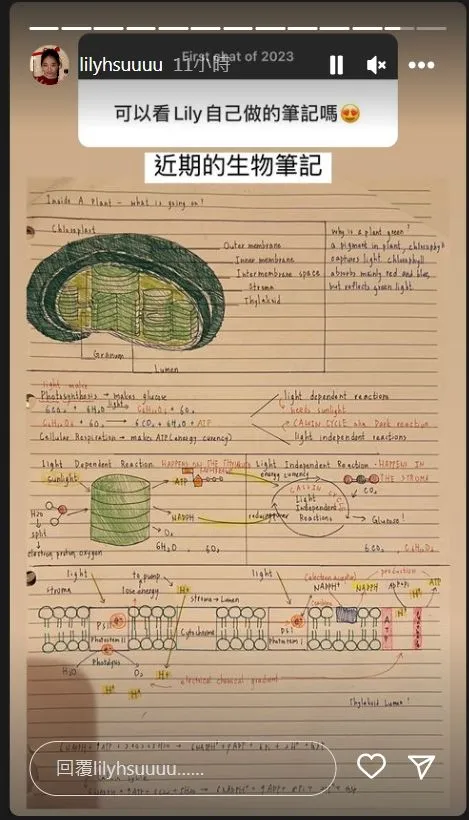 lilyhsuuuu 11小時
First chat of 2023
可以看 Lily 自己做的筆記嗎😍
近期的生物筆記
Inside A Plant - what is going on?
Chloroplast
Outer membrane
Inner membrane
Intermembrane space
Stroma
Thylakoid
Granum
Lumen
why is a plant green?
a pigment in plant, chlorophyll
captures light. chlorophyll
absorbs mainly red and blue,
but reflects green light.
light makes
Photosynthesis → makes glucose
6CO₂ + 6H₂O light → C₆H₁₂O₆ + 6O₂
C₆H₁₂O₆ + 6O₂ → 6CO₂ + 6H₂O + ATP
Cellular Respiration → makes ATP (energy
light dependent reactions
needs sunlight
CALVIN CYCLE aka Dark reaction
light independent reactions
Light Dependent Reaction HAPPENS ON THE
sunlight
H₂O
split
electron proton oxygen
ATP
NADPH
O₂
6H₂O 6O₂
Light Independent Reaction - HAPPENS IN
THE STROMA
energy currency
CO₂
Light
Independent
Reactions
Glucose!
6CO₂ C₆H₁₂O₆
light
stroma
to pump
lose energy
H⁺
stroma → Lumen
light
(electron acceptor)
NADPH
production
ATP
PSII
Photosystem II
Cytochrome
PSI
Photosystem I
Photolysis
H₂O
O₂
H⁺
H⁺
H⁺
electrical chemical gradient
Thylakoid Lumen!
回覆lilyhsuuuu……